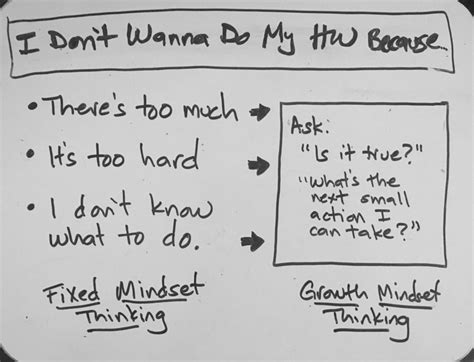 I Don't Wanna Do My HW Because...
• There's too much
• It's too hard
• I don't know
what to do.
Fixed Mindset
Thinking
Ask:
"Is it true?"
"What's the
next small
action I
can take?"
Growth Mindset
Thinking